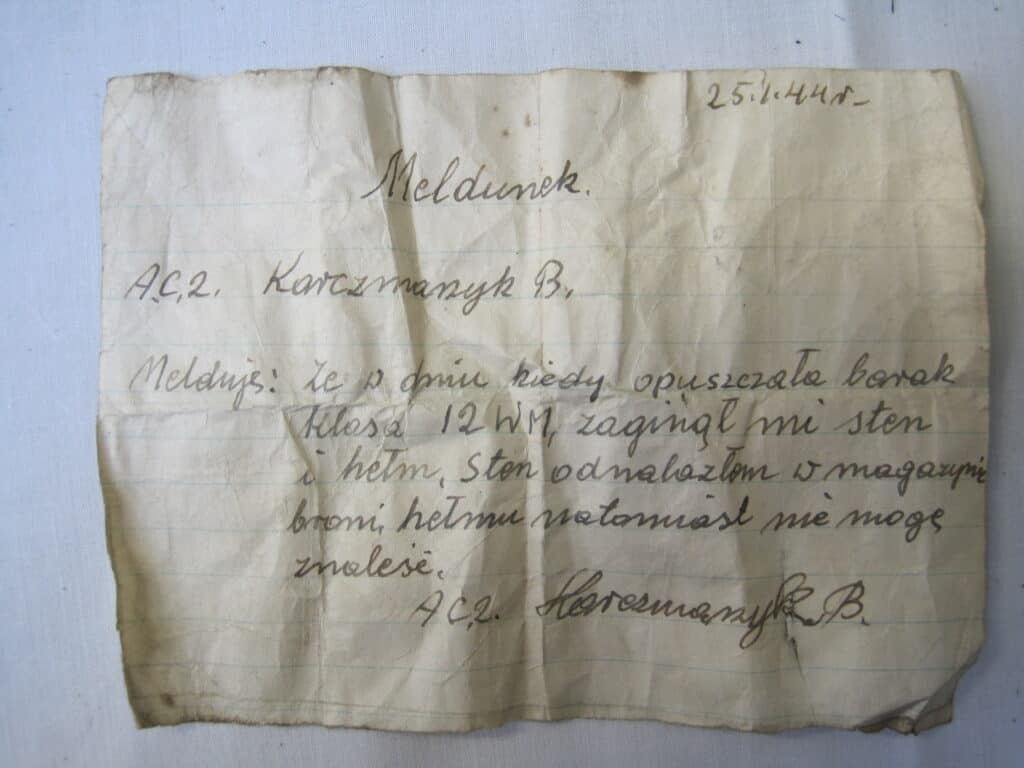 25.1.44r-
Meldunek.
A.C.2. Karczmarzyk B.
Melduję: że w dniu kiedy opuszczała barak
klasa 12 WM, zaginął mi sten
i hełm. Sten odnalazłem w magazynie
broni, hełmu natomiast nie mogę
znaleść.
A.C.2. Karczmarzyk B.